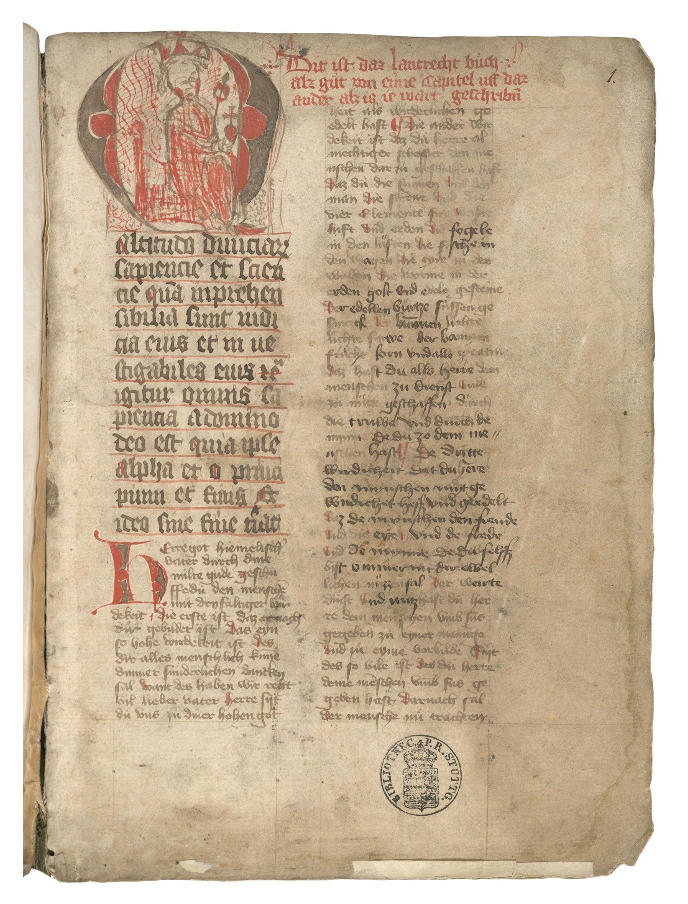 Dit ist daz lantrecht büch
alz güt von eime Capitel uff daz
ander alz iz ie wart geschribn
1.
O
altitudo diuiciarz
sapiencie et scien
cie qua inprehen
sibilia sunt iudi
cia eius et in ue
stigabiles eius
igitur omnis sa
piencia a domino
deo est quia ipse
alpha et o princi
pium et finis Et
ideo sine fine
Herregot hiemelisch
vater durch dine
milte gude geschu
ffedu den mensche
mit drifaltiger wir
dekeit die erste ist daz er nach
dir gebildet ist Daz eyn
so hohe wirdekeit ist des
dir alles menschlich kunne
ummer sunderlichen dancken
sal want des haben wir reht
vil lieber vater herre sijt
du uns zu diner hohen got
heit als wirdeclichen ge
edelt hast Die ander wir
dekeit ist daz du herre al
mechtiger schepfer den me
nschen dar zu geschaffen hast
Daz du die sunnen und den
man die sterne und die
vier Elemente
luft und erden die fogele
in den lüften die fische in
den wagen die tyre in den
walden die worme in der
erden golt und edele gesteine
der edellen würtze süssen ge
smack der blumen
lichte farwe der baumen
früchte korn und alles
daz hast du alles herre dem
menschen zu dienst und
zu nütz geschaffen durch
die truwe und durch die
mynne die du zo dem me
nschen hast Die dritte
wirdickeit dat du here
den mynschen mit ge
wirdichet hest und geedelt
daz de mynschin den freude
und die eyre und de froede
und de mynne de du selff
bist ummer mit dir ewec
lichen nizzen sal der worte
dinst und nutz hast du her
re dem menschen umb sus
gegeben zu eyner manunge
und zu eyme vorbilde Sijt
des so vile ist des du herre
deme menschen umb sus ge
geben hast Darnach sal
der mensche nu trachten
BIBLIOTHEC. P. R. STUTTG.